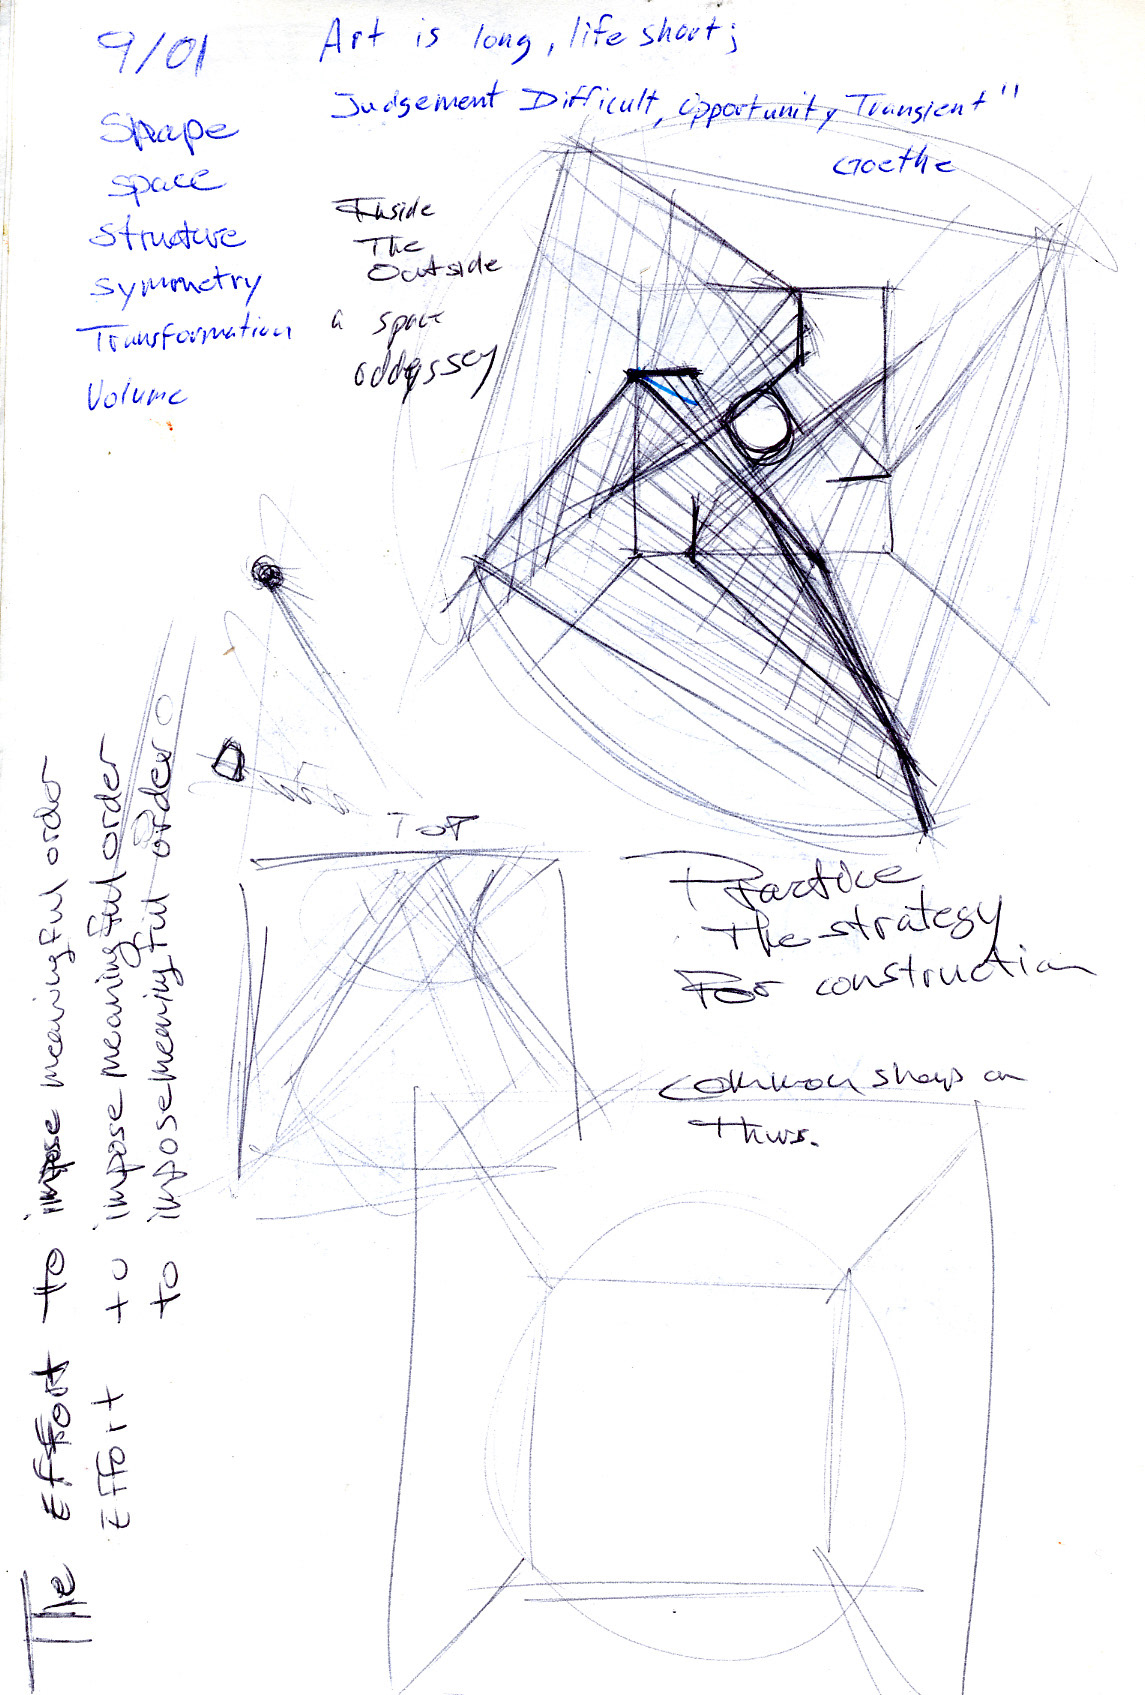 9/01
Art is long, life short;
Judgement Difficult, opportunity Transient"
Goethe
Shape
space
structure
symmetry
Transformation
Volume
Inside
The
Outside
a space
oddyssey
TOP
Practice
The strategy
For construction
common shop on
Thurs.
The Effort to impose meaningful order
Effort to impose meaningful order
to impose meaningful order